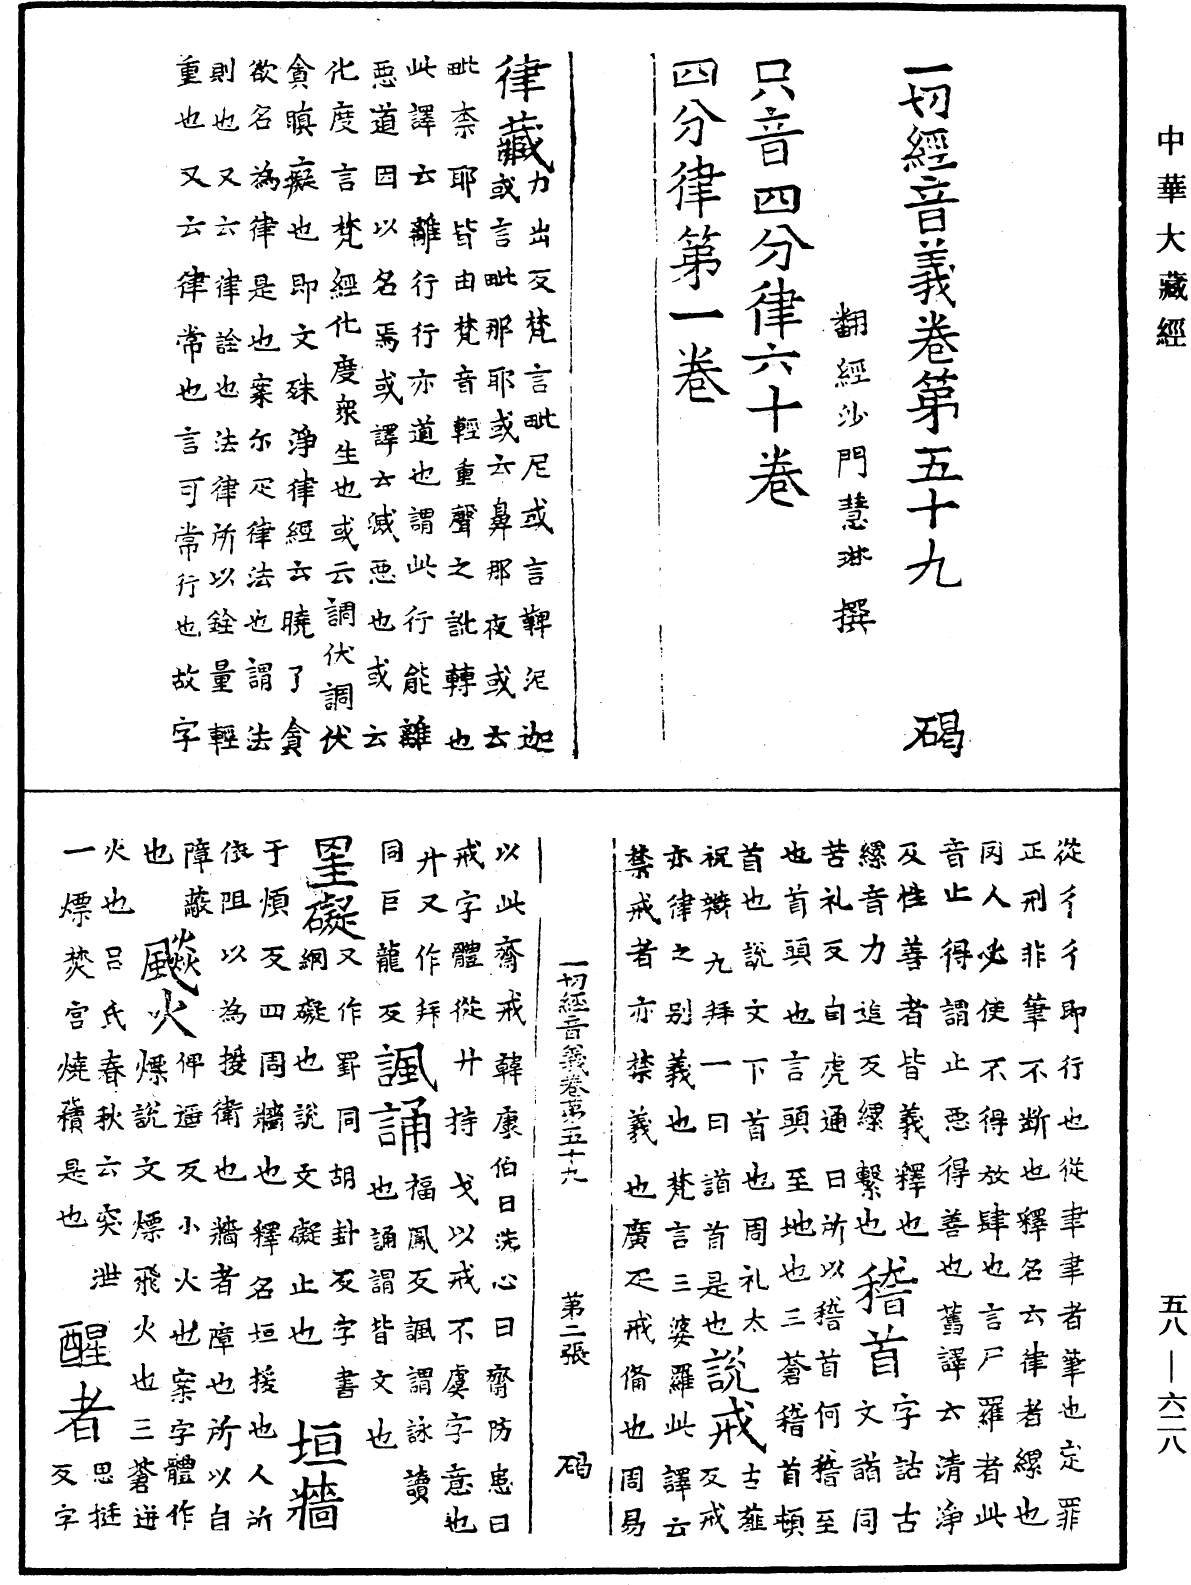 中華大藏經
一切經音義卷第五十九 碣
翻經沙門慧琳撰
只音四分律六十卷
四分律第一卷
律藏力出反梵言毗尼或言鞞泥迦
或言毗那耶或云鼻那夜或云
毗柰耶皆由梵音輕重聲之訛轉也
此譯云離行行亦道也謂此行能離
惡道因以名焉或譯云滅惡也或云
化度言梵經化度衆生也或云調伏調伏
貪瞋癡也即文殊淨律經云曉了貪
欲名為律是也案尔疋律法也謂法
則也又云律詮也法律所以銓量輕
重也又云律常也言可常行也故字
從彳彳即行也從聿聿者筆也定罪
正刑非筆不断也釋名云律者縲也
冈人必使不得放肆也言尸羅者此
音止得謂止惡得善也舊譯云清淨
及性善者皆義釋也 字詁古
縲音力追反縲繫也稽首文䭫同
苦礼反白虎通曰所以稽首何稽至
也首頭也言頭至地也三蒼稽首頓
首也說文下首也周礼太
祝辯九拜一曰䭫首是也說戒古薤反戒
亦律之别義也梵言三婆羅此譯云
禁戒者亦禁義也廣疋戒俻也周易
一切經音義卷第五十九 第二張 碣
以此齋戒韓康伯曰洗心曰齋防患曰
戒字體從廾持戈以戒不虞字意也
廾又作拜 福鳳反諷謂詠讀
同巨龍反諷誦也誦謂背文也
罣礙又作罫同胡卦反字書
網礙也說文礙止也垣牆
于煩反四周牆也釋名垣援也人所
依阻以為援衛也牆者障也所以自
障蔽 俾遥反小火也案字體作
也飇火熛說文熛飛火也三蒼迸
火也吕氏春秋云突泄 醒者思挺反字
一熛焚宮燒積是也
五八—六二八